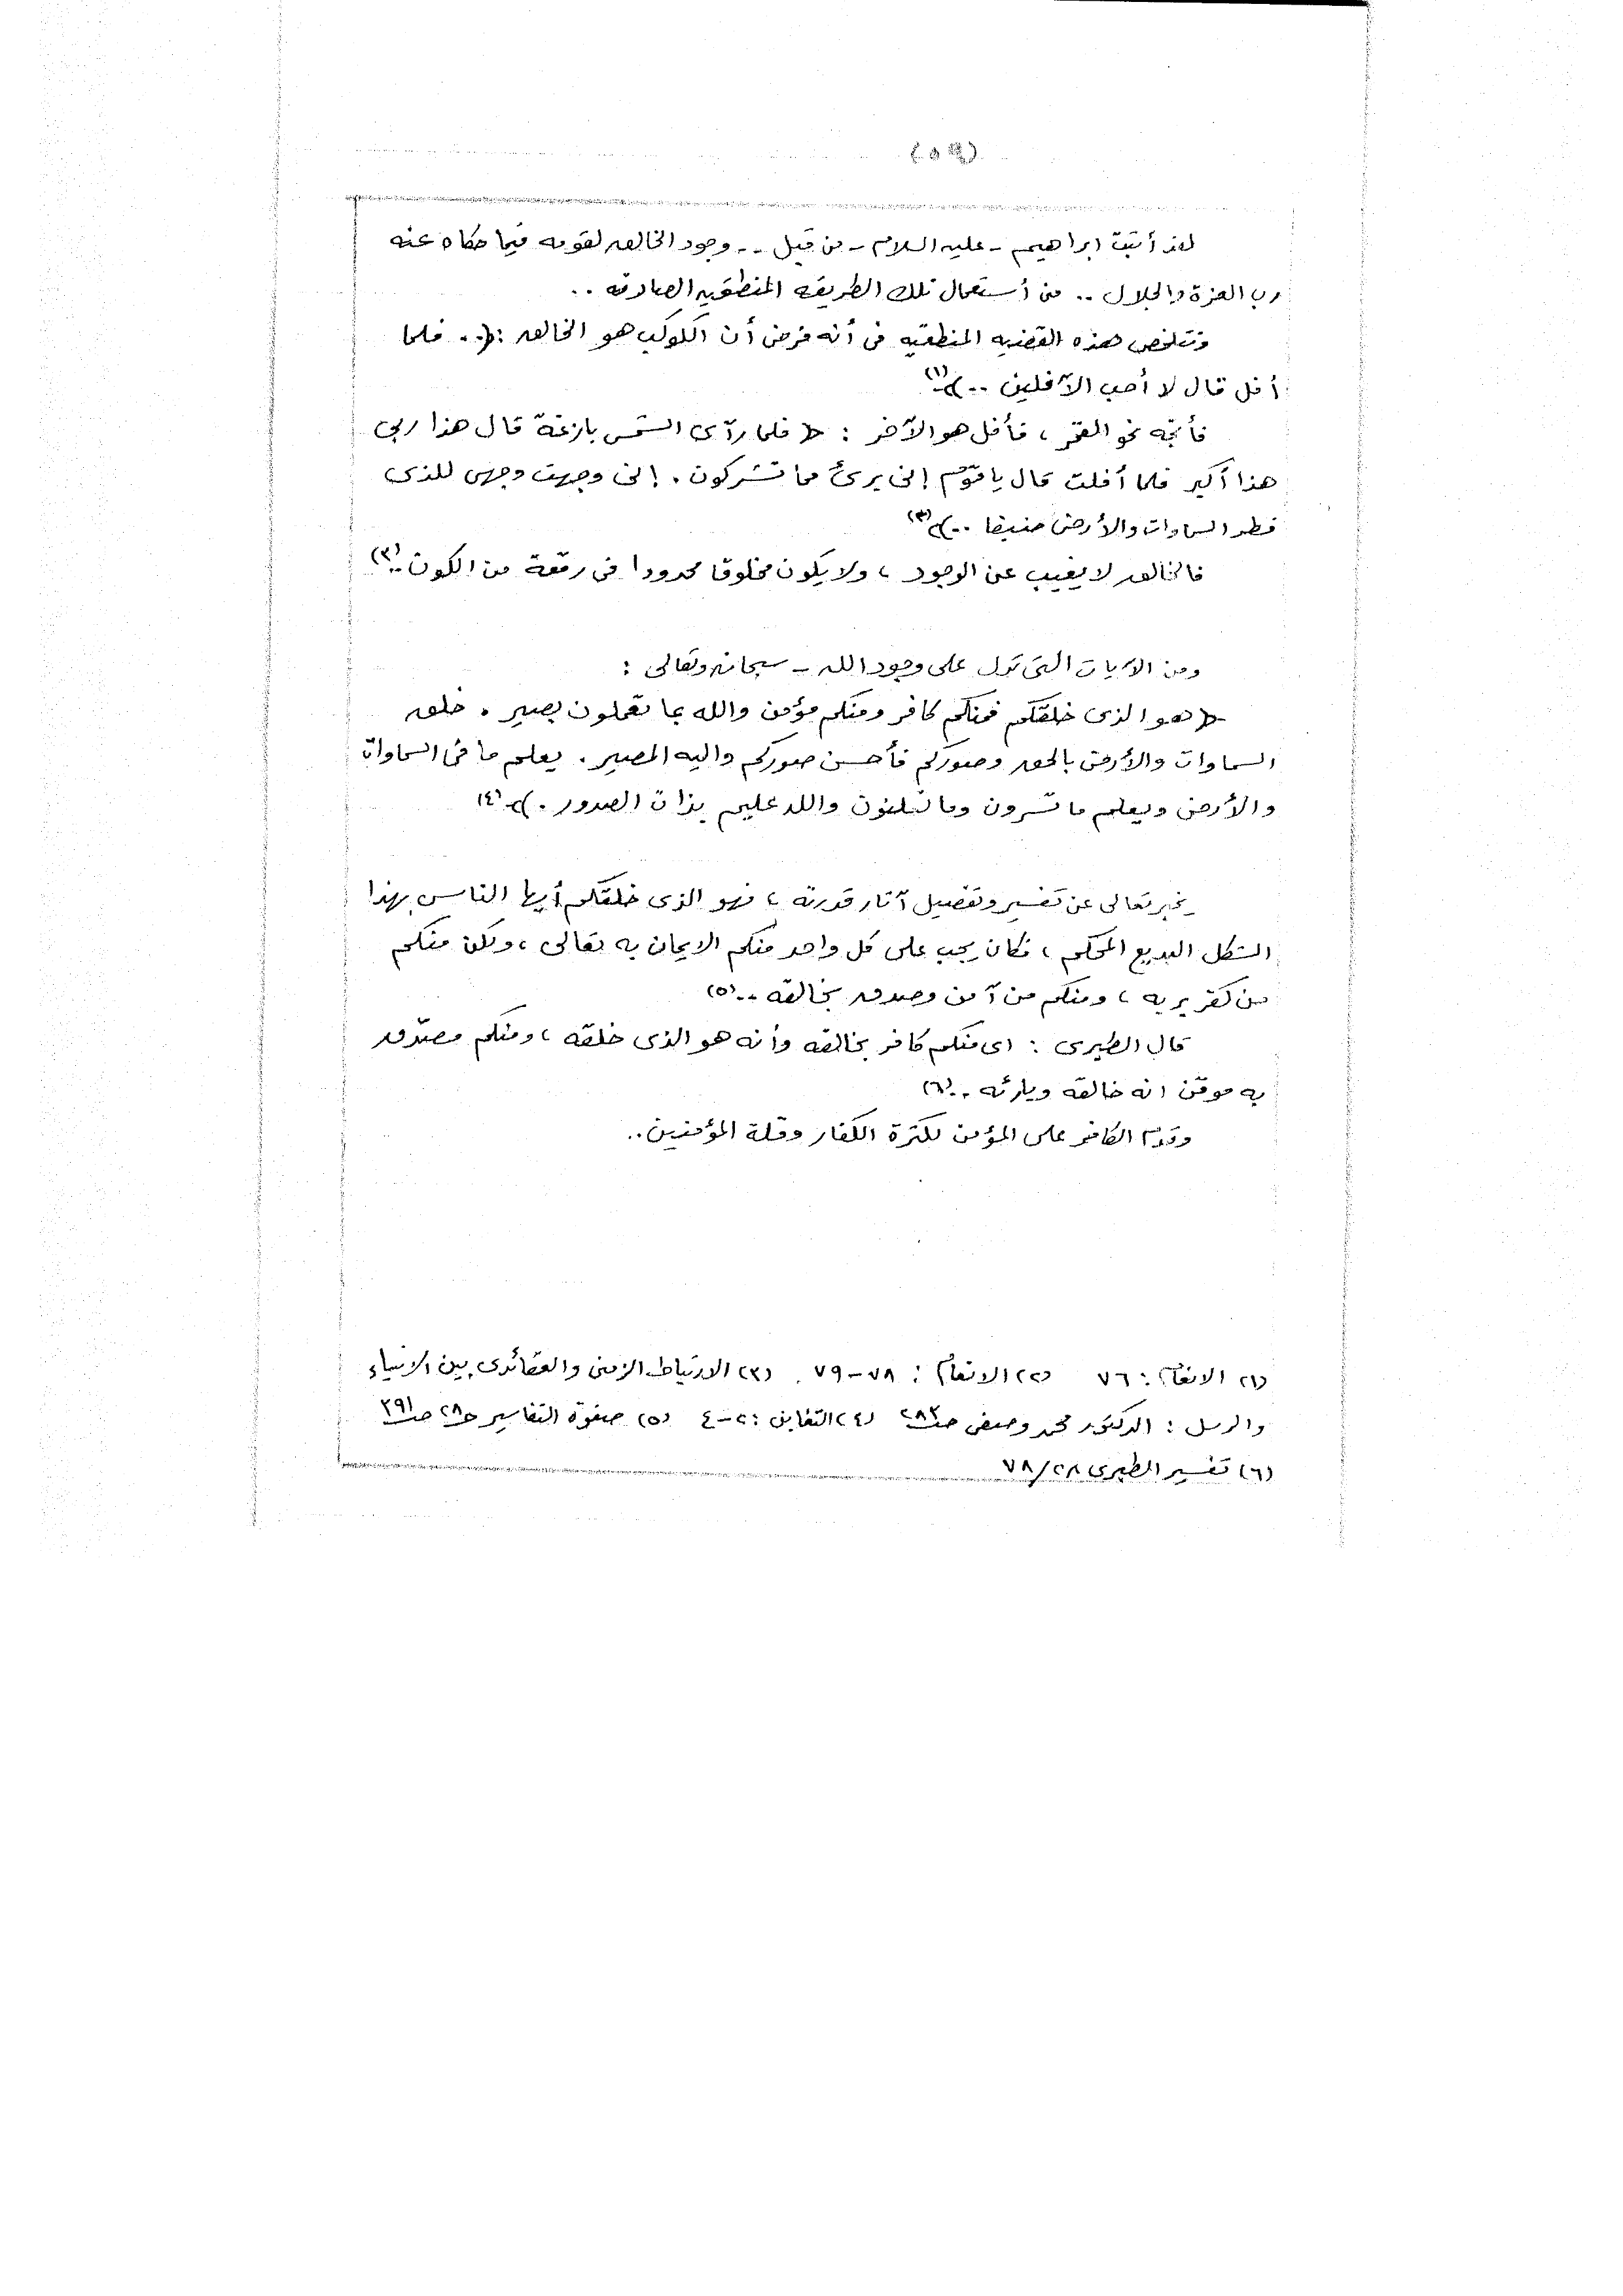 لقد أثبت ابراهيم - عليه السلام - من قبل .. وجود الخالق لقومه فيما حكاه عنه
رب العزة والجلال .. من أستعمال تلك الطريقه المنطقيه الصادقه ..
وتتلخص هذه القضيه المنطقيه فى أنه فرض أن الكوكب هو الخالق : ﴿.. فلما
أفل قال لا أحب الآفلين ..﴾ (١)
فأتجه نحو القمر ، فأفل هو الآخر : ﴿ فلما رآى الشمس بازغة قال هذا ربى
هذا أكبر فلما أفلت قال ياقوم إنى برئ مما تشركون . إنى وجهت وجهى للذى
فطر السماوات والأرض حنيفا ..﴾ (٢)
فالخالق لا يغيب عن الوجود ، ولا يكون مخلوقا محدودا فى رقعة من الكون .. (٣)
ومن الآيات التى تدل على وجود الله - سبحانه وتعالى :
﴿ هو الذى خلقكم فمنكم كافر ومنكم مؤمن والله بما تعملون بصير . خلق
السماوات والأرض بالحق وصوركم فأحسن صوركم واليه المصير . يعلم ما فى السماوات
والأرض ويعلم ما تسرون وما تعلنون والله عليم بذات الصدور . ﴾ (٤)
يخبر تعالى عن تفسير وتفصيل آثار قدرته ، فهو الذى خلقكم أيها الناس بهذا
الشكل البديع المحكم ، فكان يجب على كل واحد منكم الايمان به تعالى ، ولكن منكم
من كفر بربه ، ومنكم من آمن وصدق بخالقه .. (٥)
قال الطبرى : اى منكم كافر بخالقه وأنه هو الذى خلقه ، ومنكم مصدق
به موقن انه خالقه وبارئه .. (٦)
وقدم الكافر على المؤمن لكثرة الكفار وقلة المؤمنين ..
(١) الانعام : ٧٦ (٢) الانعام : ٧٨ - ٧٩ . (٣) الارتباط الزمنى والعقائدى بين الانبياء
والرسل : الدكتور محمد وصفى صـ ٢٨٣ (٤) التغابن : ٢ - ٤ (٥) صفوة التفاسير حـ ٢٨ صـ ٣٩١
(٦) تفسير الطبرى ٢٨/ ٧٨